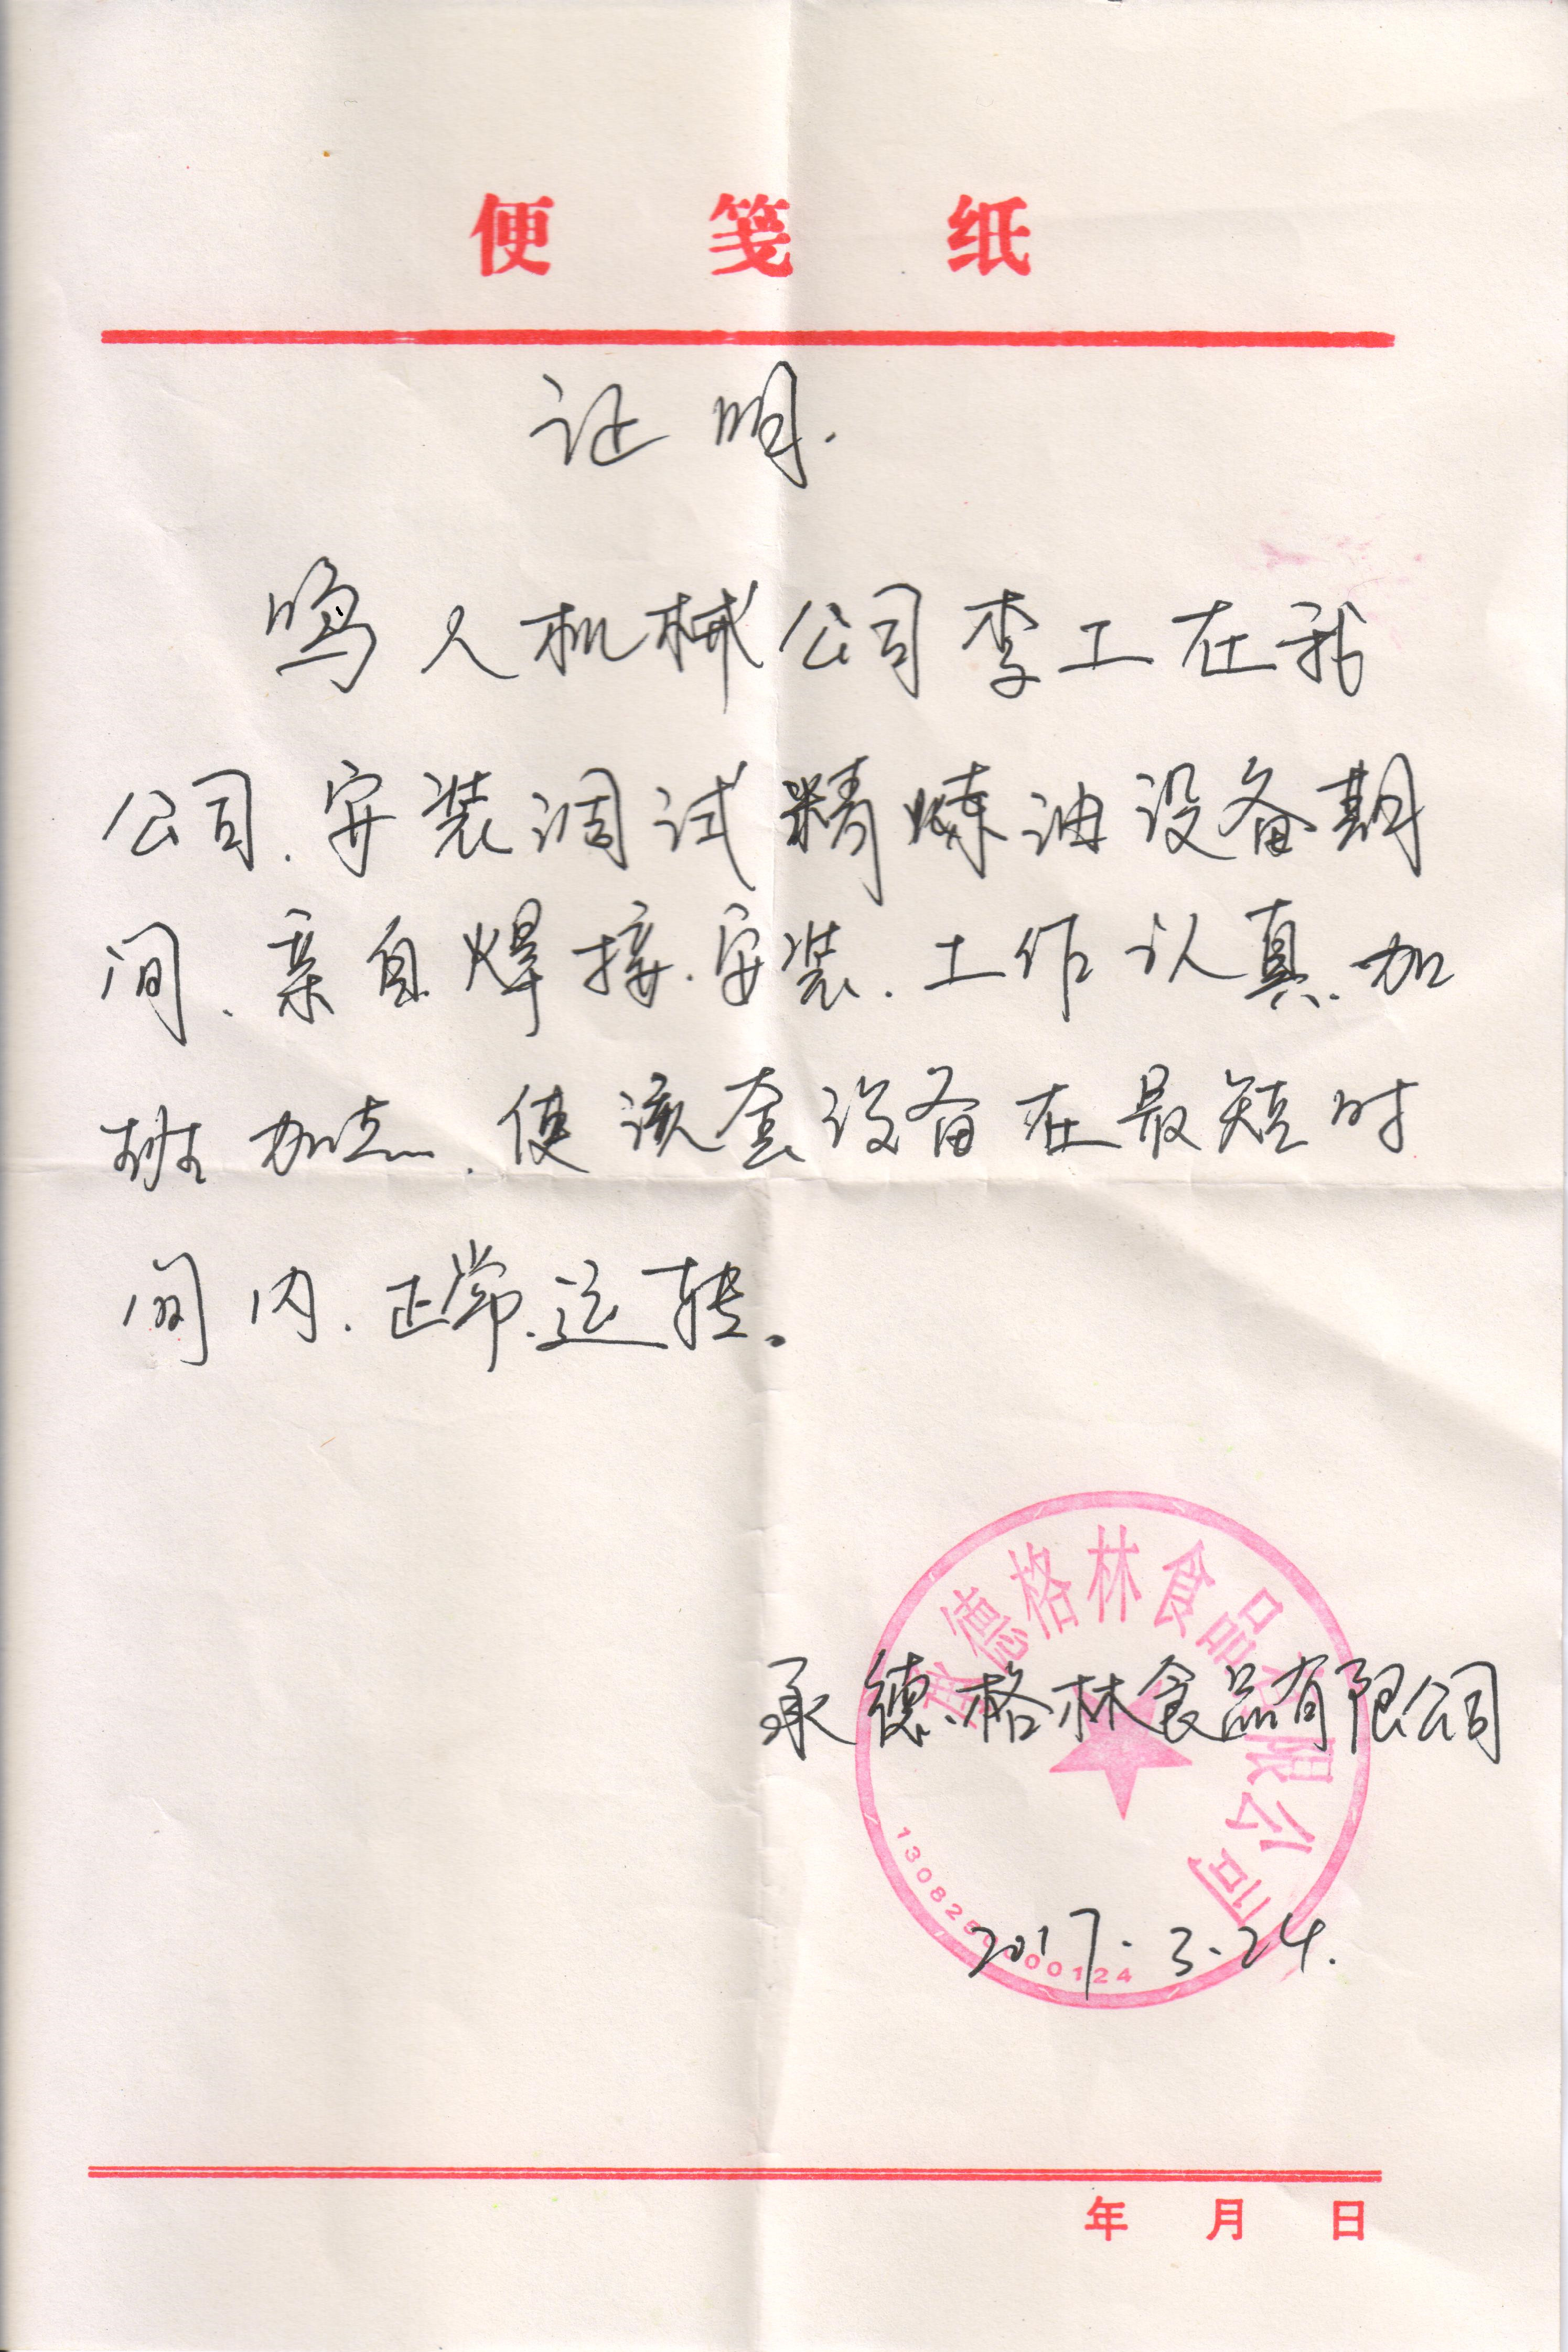 便笺纸
证明.
鸣人机械公司李工在我
公司.安装调试精炼油设备期
间.亲自焊接.安装.工作认真.加
班加点.使该套设备在最短时
间内.正常.运转。
承德格林食品有限公司
承德格林食品有限公司
2017.3.24.
年 月 日